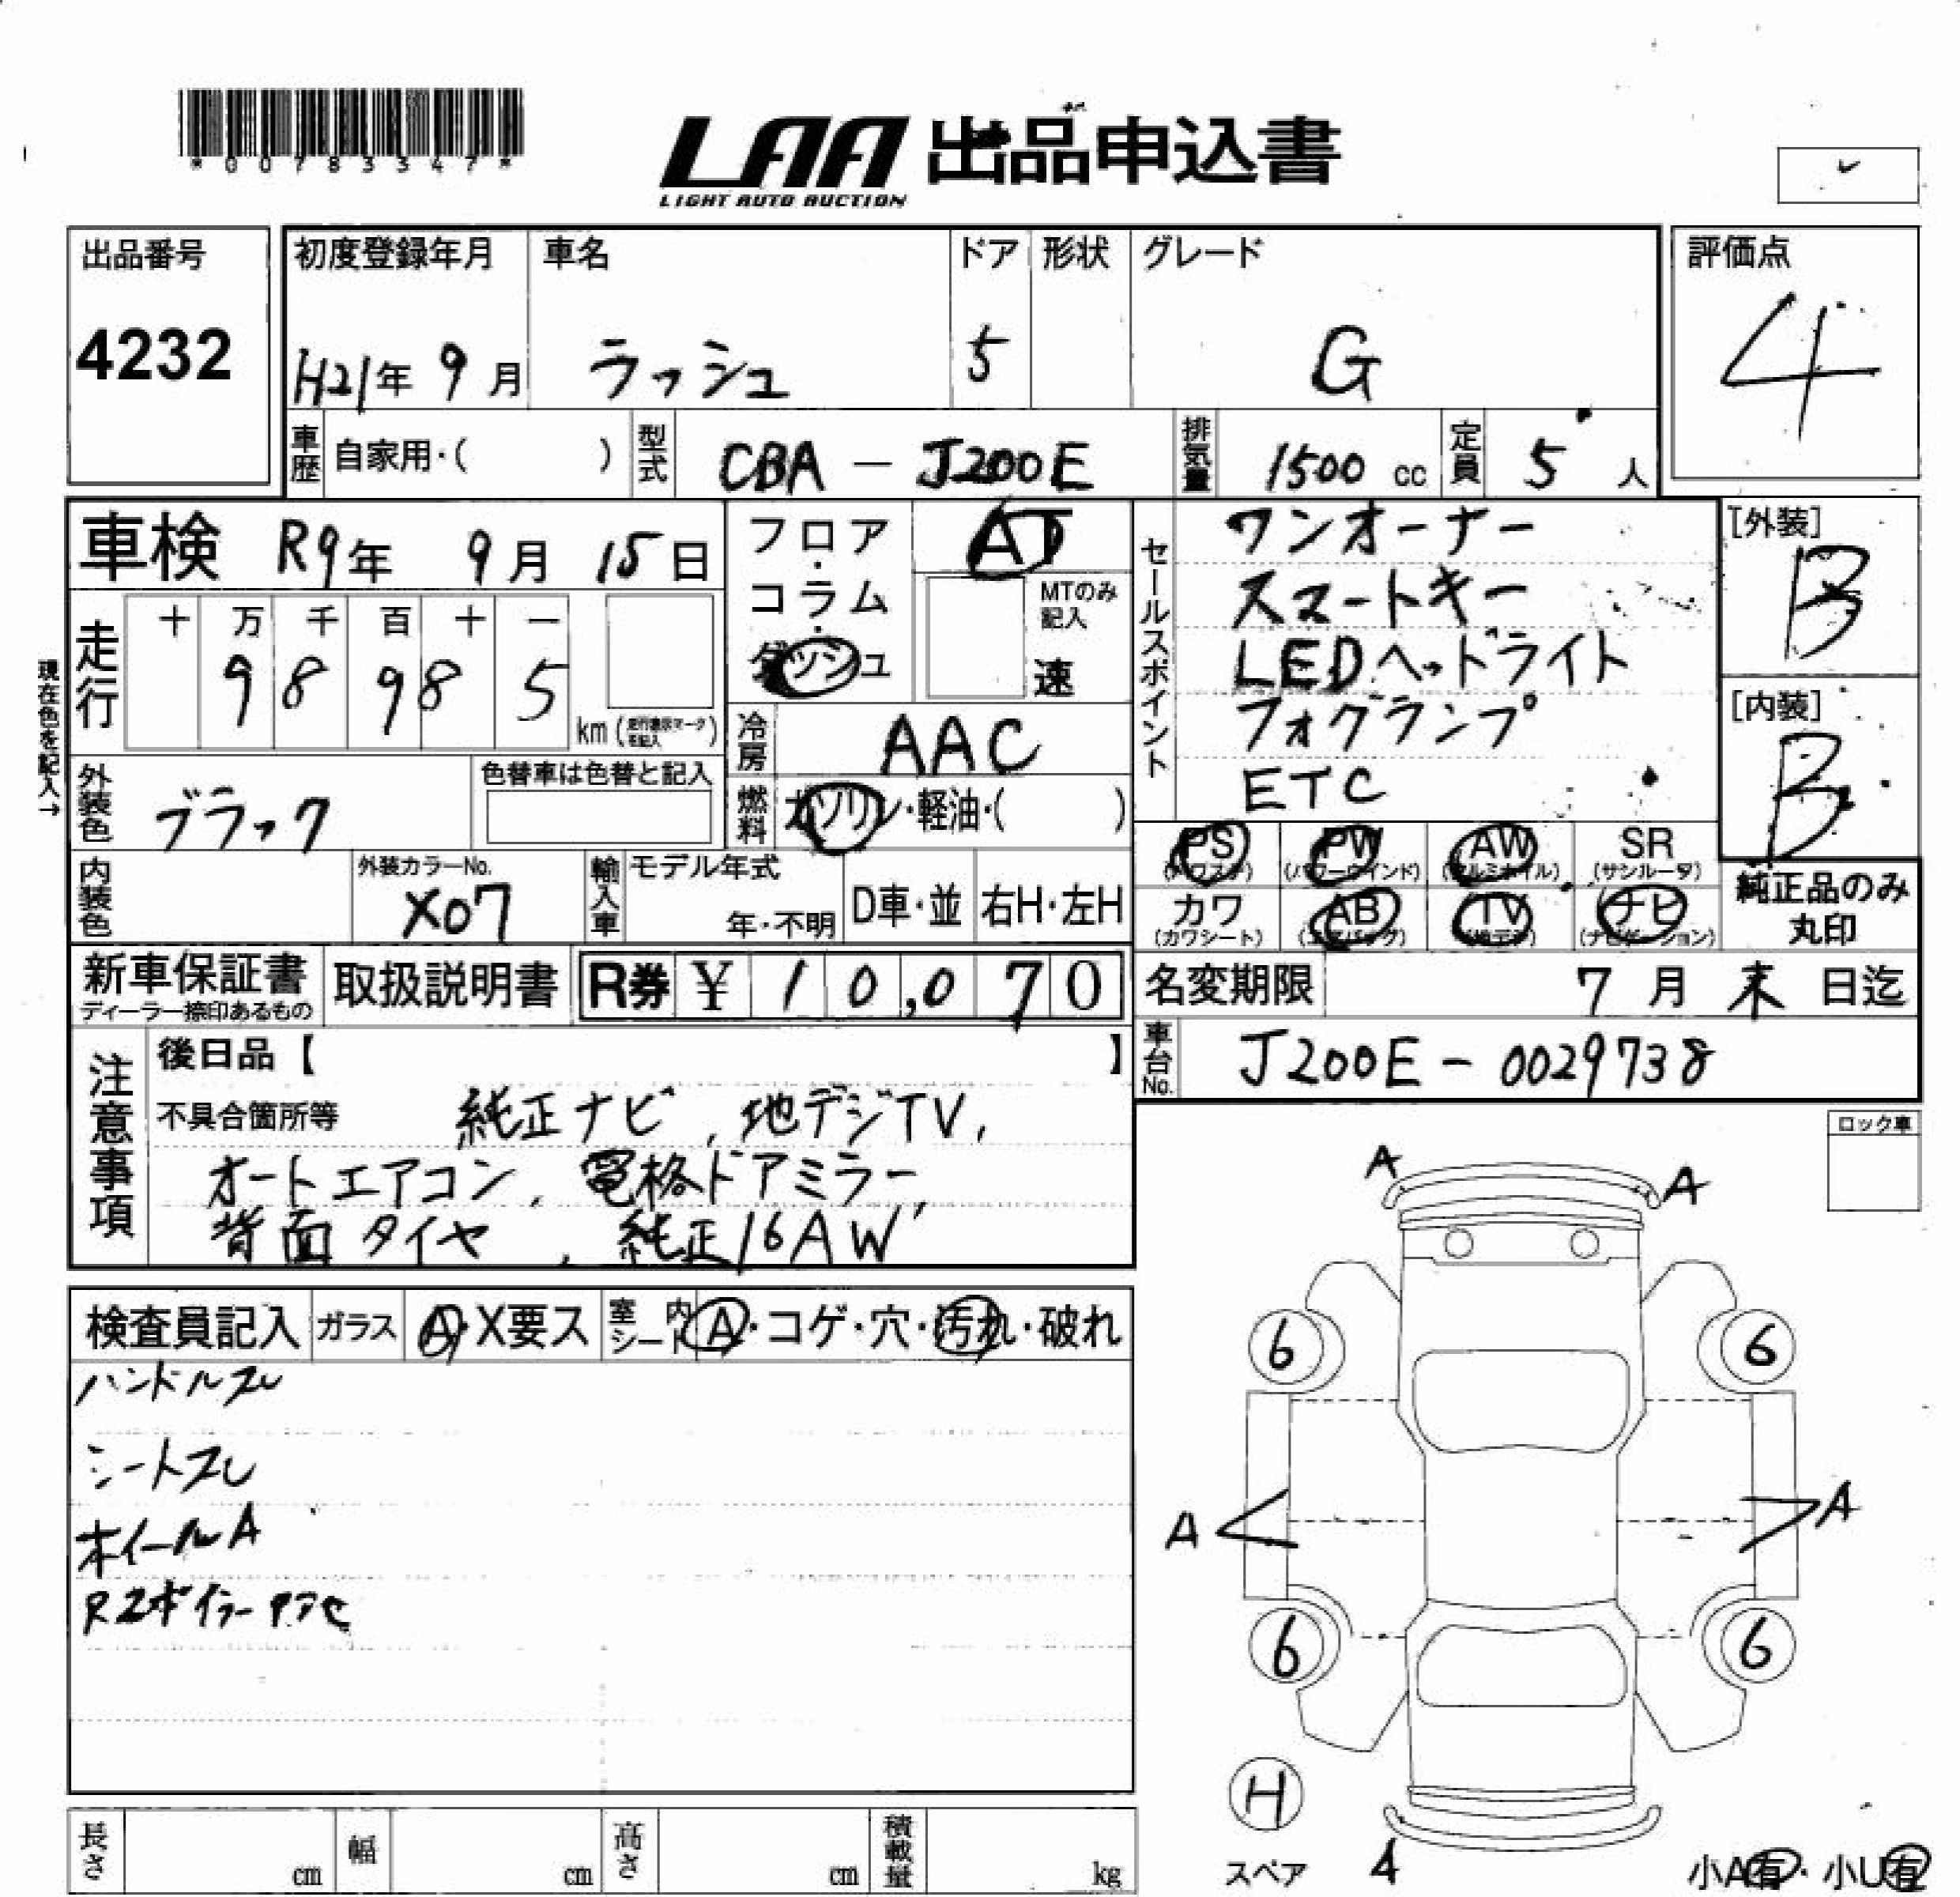 *00783347*
LAA 出品申込書
LIGHT AUTO AUCTION
出品番号
4232
初度登録年月 車名 ドア 形状 グレード
H21年 9月 ラッシュ 5 G
評価点
4
車歴 自家用・( ) 型式 CBA - J200E 排気量 1500 cc 定員 5 人
車検 R9年 9月 15日
フロア・コラム・ダッシュ
AT
MTのみ記入
速
走行 十 万 千 百 十 一
9 8 9 8 5 km
現在色を記入→
冷房 AAC
燃料 ガソリン・軽油・( )
外装色 ブラック
色替車は色替と記入
内装色
外装カラーNo.
X07
輸入車 モデル年式
年・不明 D車・並 右H・左H
セールスポイント
ワンオーナー
スマートキー
LEDヘッドライト
フォグランプ
ETC
[外装]
B
[内装]
B
PS (パワステ) PW (パワーウインド) AW (アルミホイル) SR (サンルーフ)
カワ (カワシート) AB (エアバッグ) TV (地デジ) ナビ (ナビゲーション)
純正品のみ
丸印
新車保証書
ディーラー捺印あるもの
取扱説明書 R券 ¥ 10,070
名変期限 7月 末 日迄
車台No. J200E - 0029738
注意事項
後日品【 】
不具合箇所等 純正ナビ, 地デジTV,
オートエアコン, 電格ドアミラー,
背面タイヤ, 純正16AW
検査員記入 ガラス A・X要ス 室内シート A・コゲ・穴・汚れ・破れ
ハンドルスレ
シートスレ
ホイールA
ロック車
A A
6 6
A A
6 6
H
スペア 4
小A有・小U有
長さ cm 幅 cm 高さ cm 積載量 kg